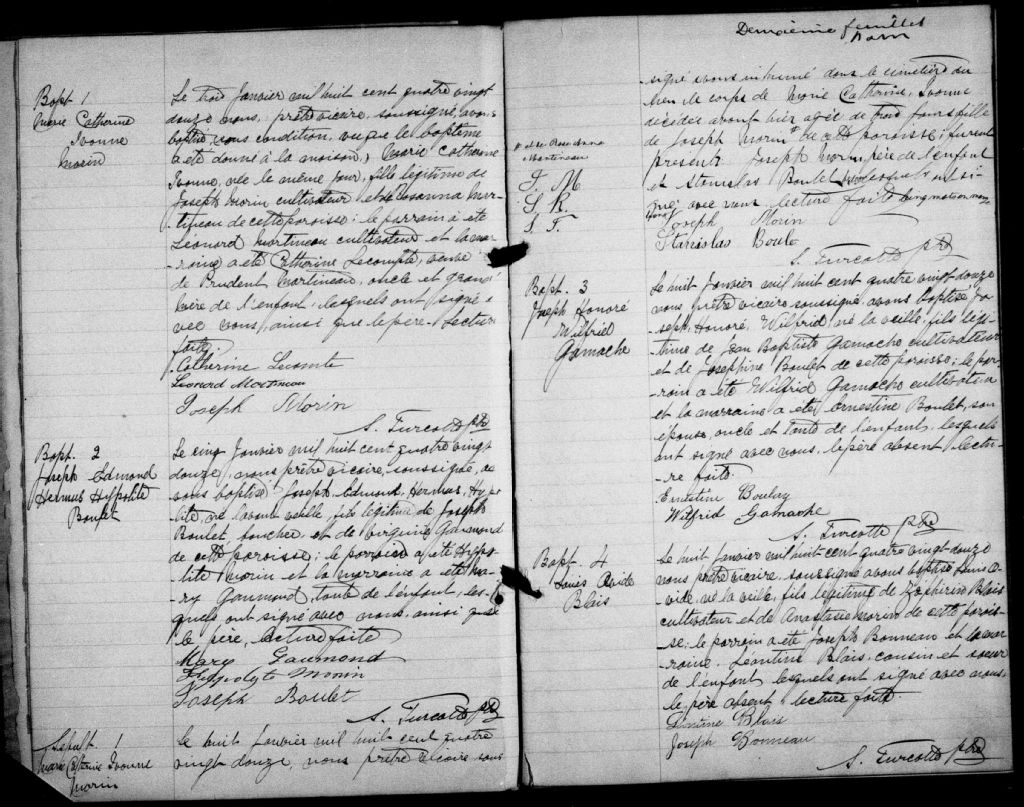 Bapt. 1
Marie Catherine
Ivonne
Morin
Le trois Janvier mil huit cent quatre vingt
douze nous, prêtre vicaire, soussigné, avons
baptisé, sous condition, vu que le baptême
a été donné à la maison, Marie Catherine
Ivonne, née le même jour, fille légitime de
Joseph Morin cultivateur et de Rosanna Mar-
tineau de cette paroisse; le parrain a été
Léonard Martineau cultivateur et la mar-
raine a été Catherine Lecompte, veuve
de Prudent Martineau, oncle et grand'
mère de l'enfant, lesquels ont signé a-
vec nous, ainsi que le père. Lecture
faite.
Catherine Lecomte
Léonard Martineau
Joseph Morin
A. Turcotte ptre
Bapt. 2
Joseph Edmond
Hermus Hippolite
Boulet
Le cinq Janvier mil huit cent quatre vingt
douze, nous prêtre vicaire, soussigné, a-
vons baptisé Joseph, Edmond, Hermus, Hypo-
lite, né l'avant veille, fils légitime de Joseph
Boulet, boucher et de Virginie Gaumond
de cette paroisse; le parrain a été Hyppo-
lite Morin et la marraine a été Ma-
ry Gaumond, tante de l'enfant, les-
quels ont signé avec nous, ainsi que
le père, lecture faite
Mary Gaumond
Hyppolyte Morin
Joseph Boulet
A. Turcotte ptre
Sépult. 1
Marie Catherine Ivonne
Morin
Le huit Janvier mil huit cent quatre
vingt douze, nous prêtre vicaire sous-
Demoième feuillet
signé avons inhumé dans le cimetière du
lieu le corps de Marie Catherine, Ivonne
décédée avant hier agée de trois jours fille
de Joseph Morin de cette paroisse; furent
présents Joseph Morin, père de l'enfant
et Stanislas Boulet lesquels ont si-
gné avec nous lecture faite
Joseph Morin
Stanislas Boule
A. Turcotte ptre
et de Rosanna
Martineau
J. M
S. B.
A. T.
Bapt. 3
Joseph Honoré
Wilfrid
Gamache
Le huit Janvier mil huit cent quatre vingt douze
nous prêtre vicaire soussigné, avons baptisé Jo-
seph, Honoré, Wilfrid, né la veille, fils légi-
time de Jean Baptiste Gamache cultivateur
et de Joséphine Boulet de cette paroisse; le par-
rain a été Wilfrid Gamache cultivateur
et la marraine a été Ernestine Boulet, son
épouse, oncle et tante de l'enfant, lesquels
ont signé avec nous, le père absent lectu-
re faite
Ernestine Boulay
Wilfrid Gamache
A. Turcotte ptre
Bapt. 4
Louis Ovide
Blais
Le huit Janvier mil huit cent quatre vingt douze
nous prêtre vicaire, soussigné avons baptisé Louis O-
vide, né la veille, fils légitime de Zéphirin Blais
cultivateur et de Anastasie Morin de cette parois-
se; le parrain a été Joseph Bonneau et la mar-
raine Léontine Blais, cousin et soeur
de l'enfant lesquels ont signé avec nous,
le père absent lecture faite.
Léontine Blais
Joseph Bonneau
A. Turcotte ptre